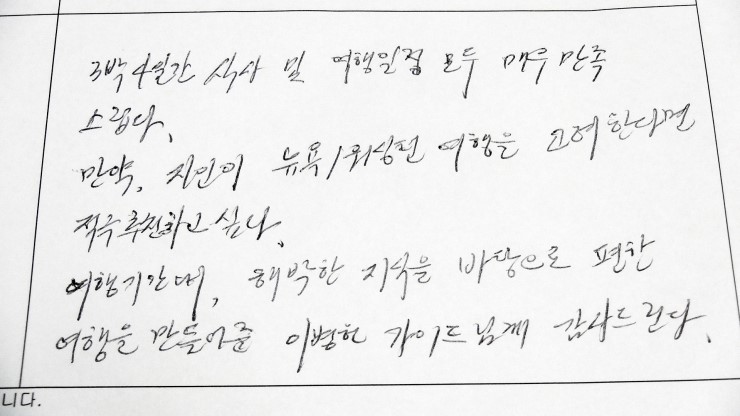 3박4일간 식사 및 여행일정 모두 매우 만족
스럽다.
만약, 지인이 뉴욕/워싱턴 여행을 고려한다면
적극추천하고 싶다.
여행기간대, 해박한 지식을 바탕으로 편한
여행을 만들어준 이병헌 가이드님께 감사드린다.
니다.